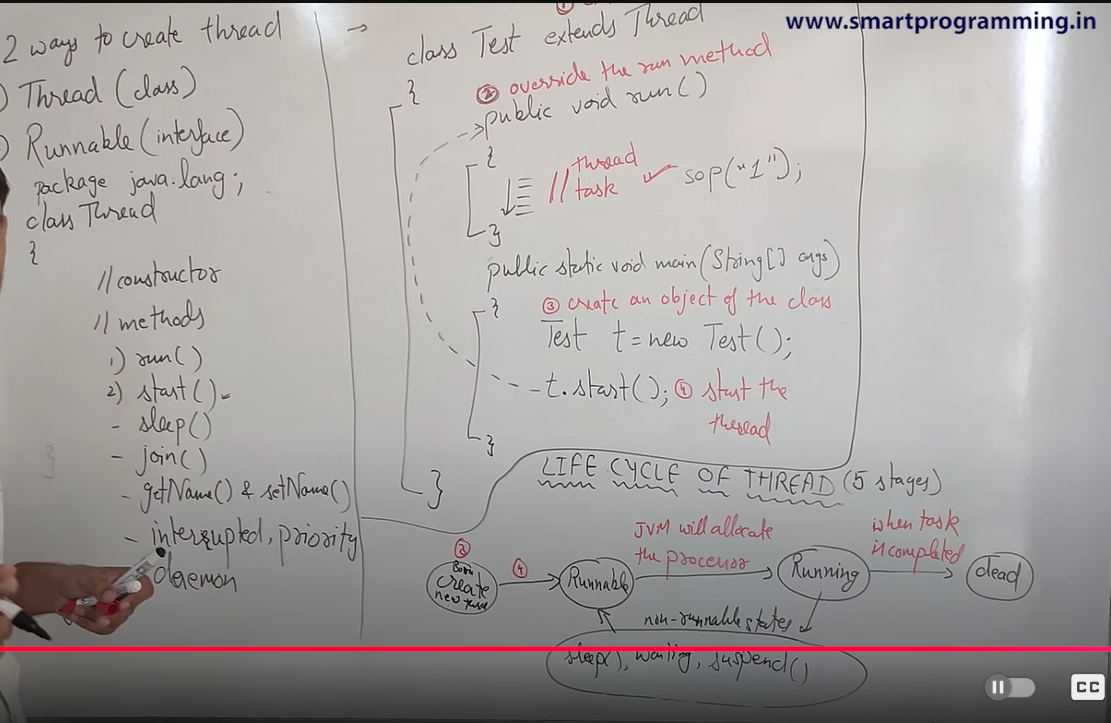 www.smartprogramming.in
2 ways to create thread
) Thread (class)
) Runnable (interface)
package java.lang;
class Thread
{
// constructor
// methods
1) run()
2) start()
- sleep()
- join()
- getName() & setName()
- interrupted, priority
daemon
→
①
class Test extends Thread
{
② override the run method
public void run()
{
// thread task ✓ sop("1");
}
public static void main(String[] args)
{
③ create an object of the class
Test t = new Test();
t.start(); ④ start the
thread
}
}
LIFE CYCLE OF THREAD (5 stages)
③
Born
create
new thread
④
Runnable
JVM will allocate
the processor
Running
when task
is completed
dead
non-runnable states
sleep(), waiting, suspend()
CC